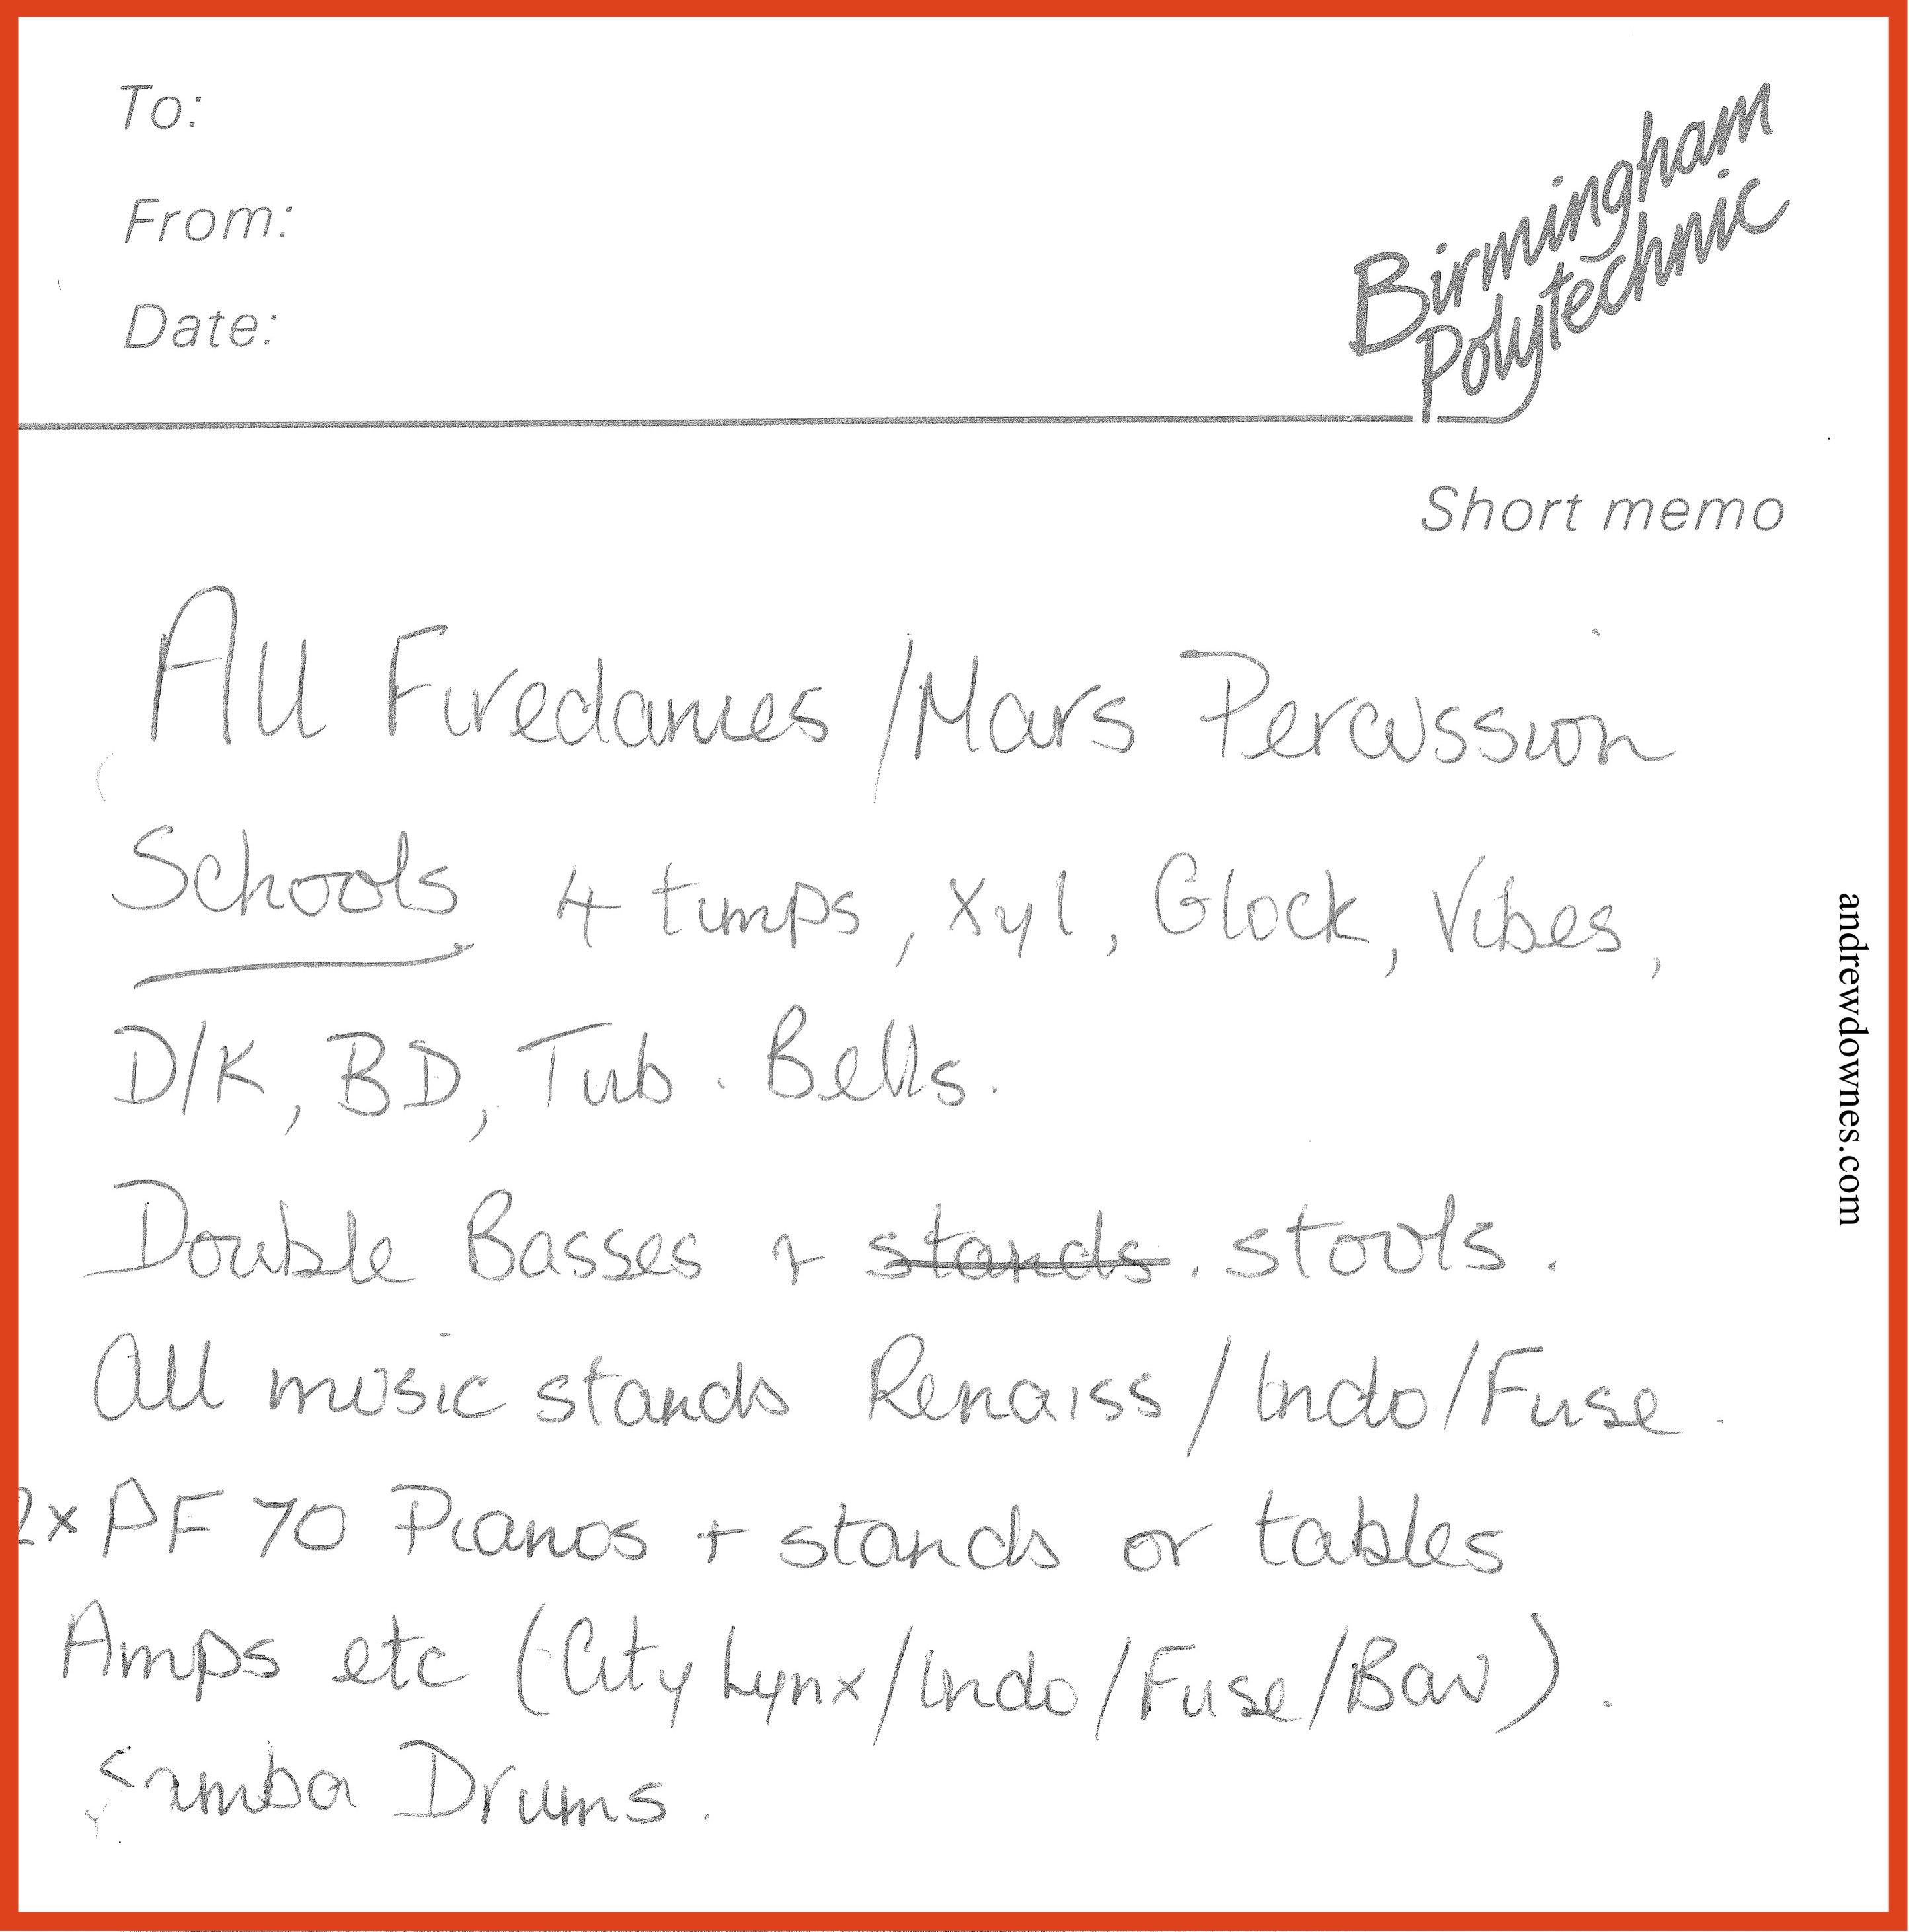 To:
From:
Date:
Birmingham
Polytechnic
Short memo
All Firedances / Mars Percussion
Schools 4 timps, Xyl, Glock, Vibes,
D/K, BD, Tub. Bells.
Double Basses + stands. stools.
All music stands Renaiss / Indo / Fuse.
2x PF 70 Pianos + stands or tables
Amps etc (City Lynx / Indo / Fuse / Bav).
Samba Drums.
andrewdownes.com